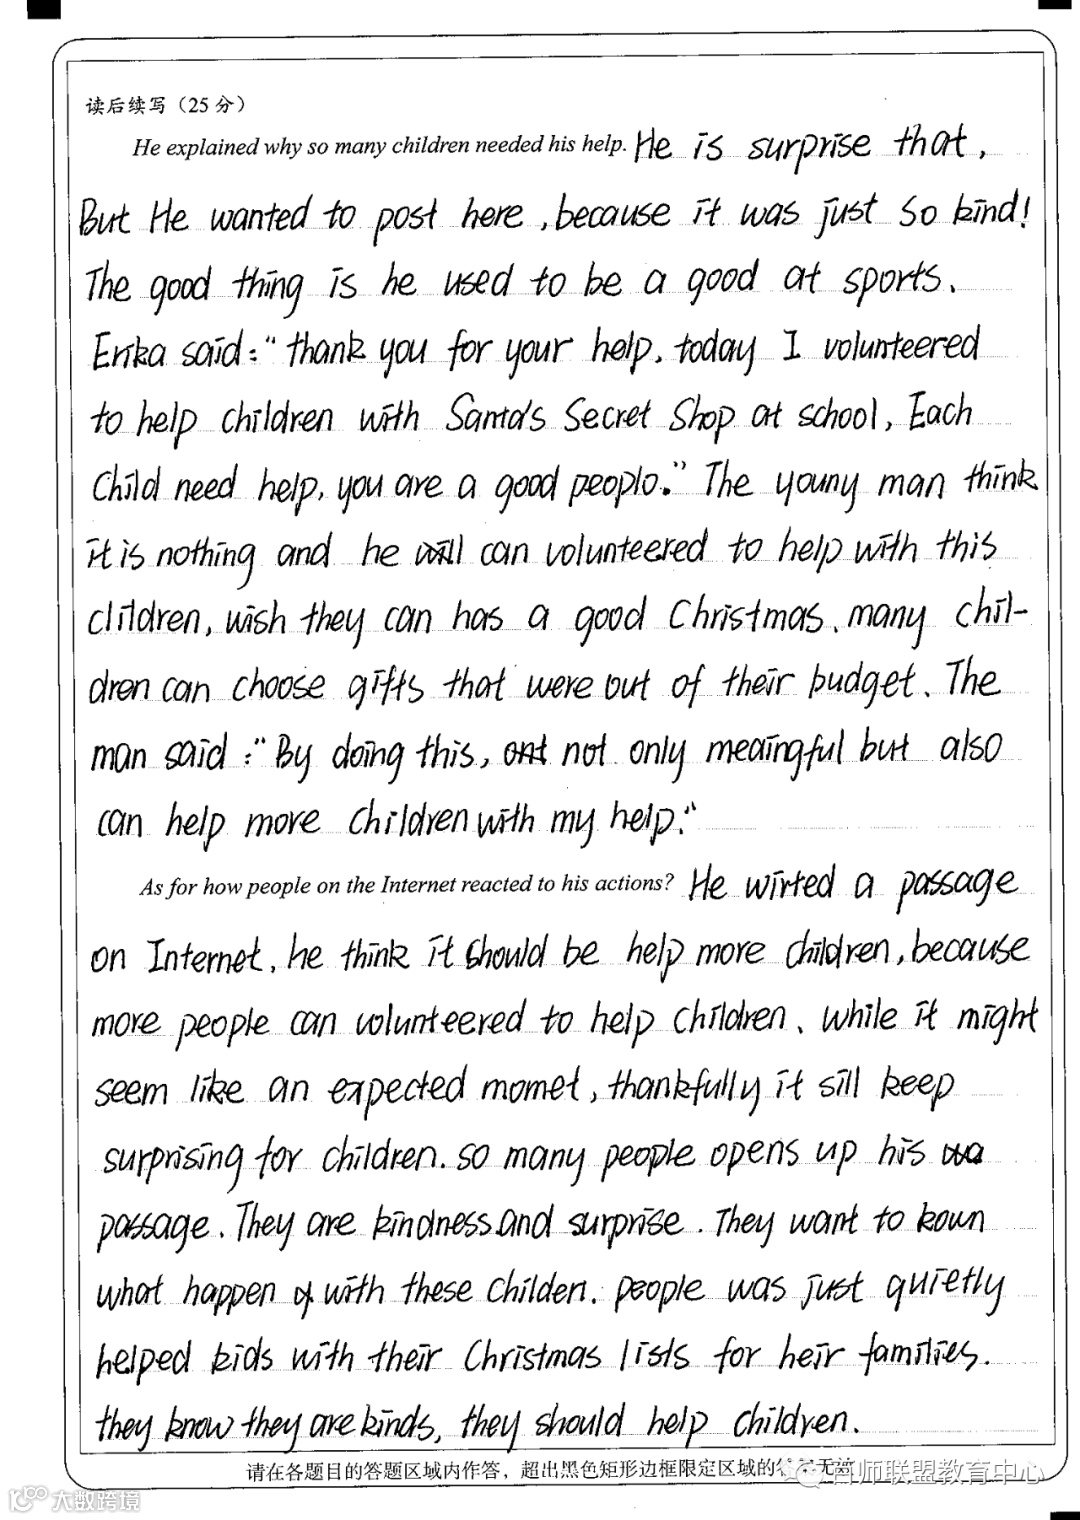 读后续写（25分）
He explained why so many children needed his help. He is surprise that,
But He wanted to post here, because it was just so kind!
The good thing is he used to be a good at sports.
Erika said: "thank you for your help. today I volunteered
to help children with Santa's Secret Shop at school, Each
Child need help, you are a good peoplo." The youny man think
it is nothing and he will can volunteered to help with this
clildren, wish they can has a good Christmas. many chil-
dren can choose gifts that were out of their budget. The
man said: "By doing this, not only meaingful but also
can help more children with my help."
As for how people on the Internet reacted to his actions? He wirted a passage
on Internet, he think it should be help more children, because
more people can volunteered to help children. while it might
seem like an expected momet, thankfully it sill keep
surprising for children. so many people opens up his
passage. They are kindness and surprise. They want to kown
what happen with these Childen. people was just quietly
helped kids with their Christmas lists for heir families.
they know they are kinds, they should help children.
请在各题目的答题区域内作答，超出黑色矩形边框限定区域的答案无效
百师联盟教育中心
大数跨境